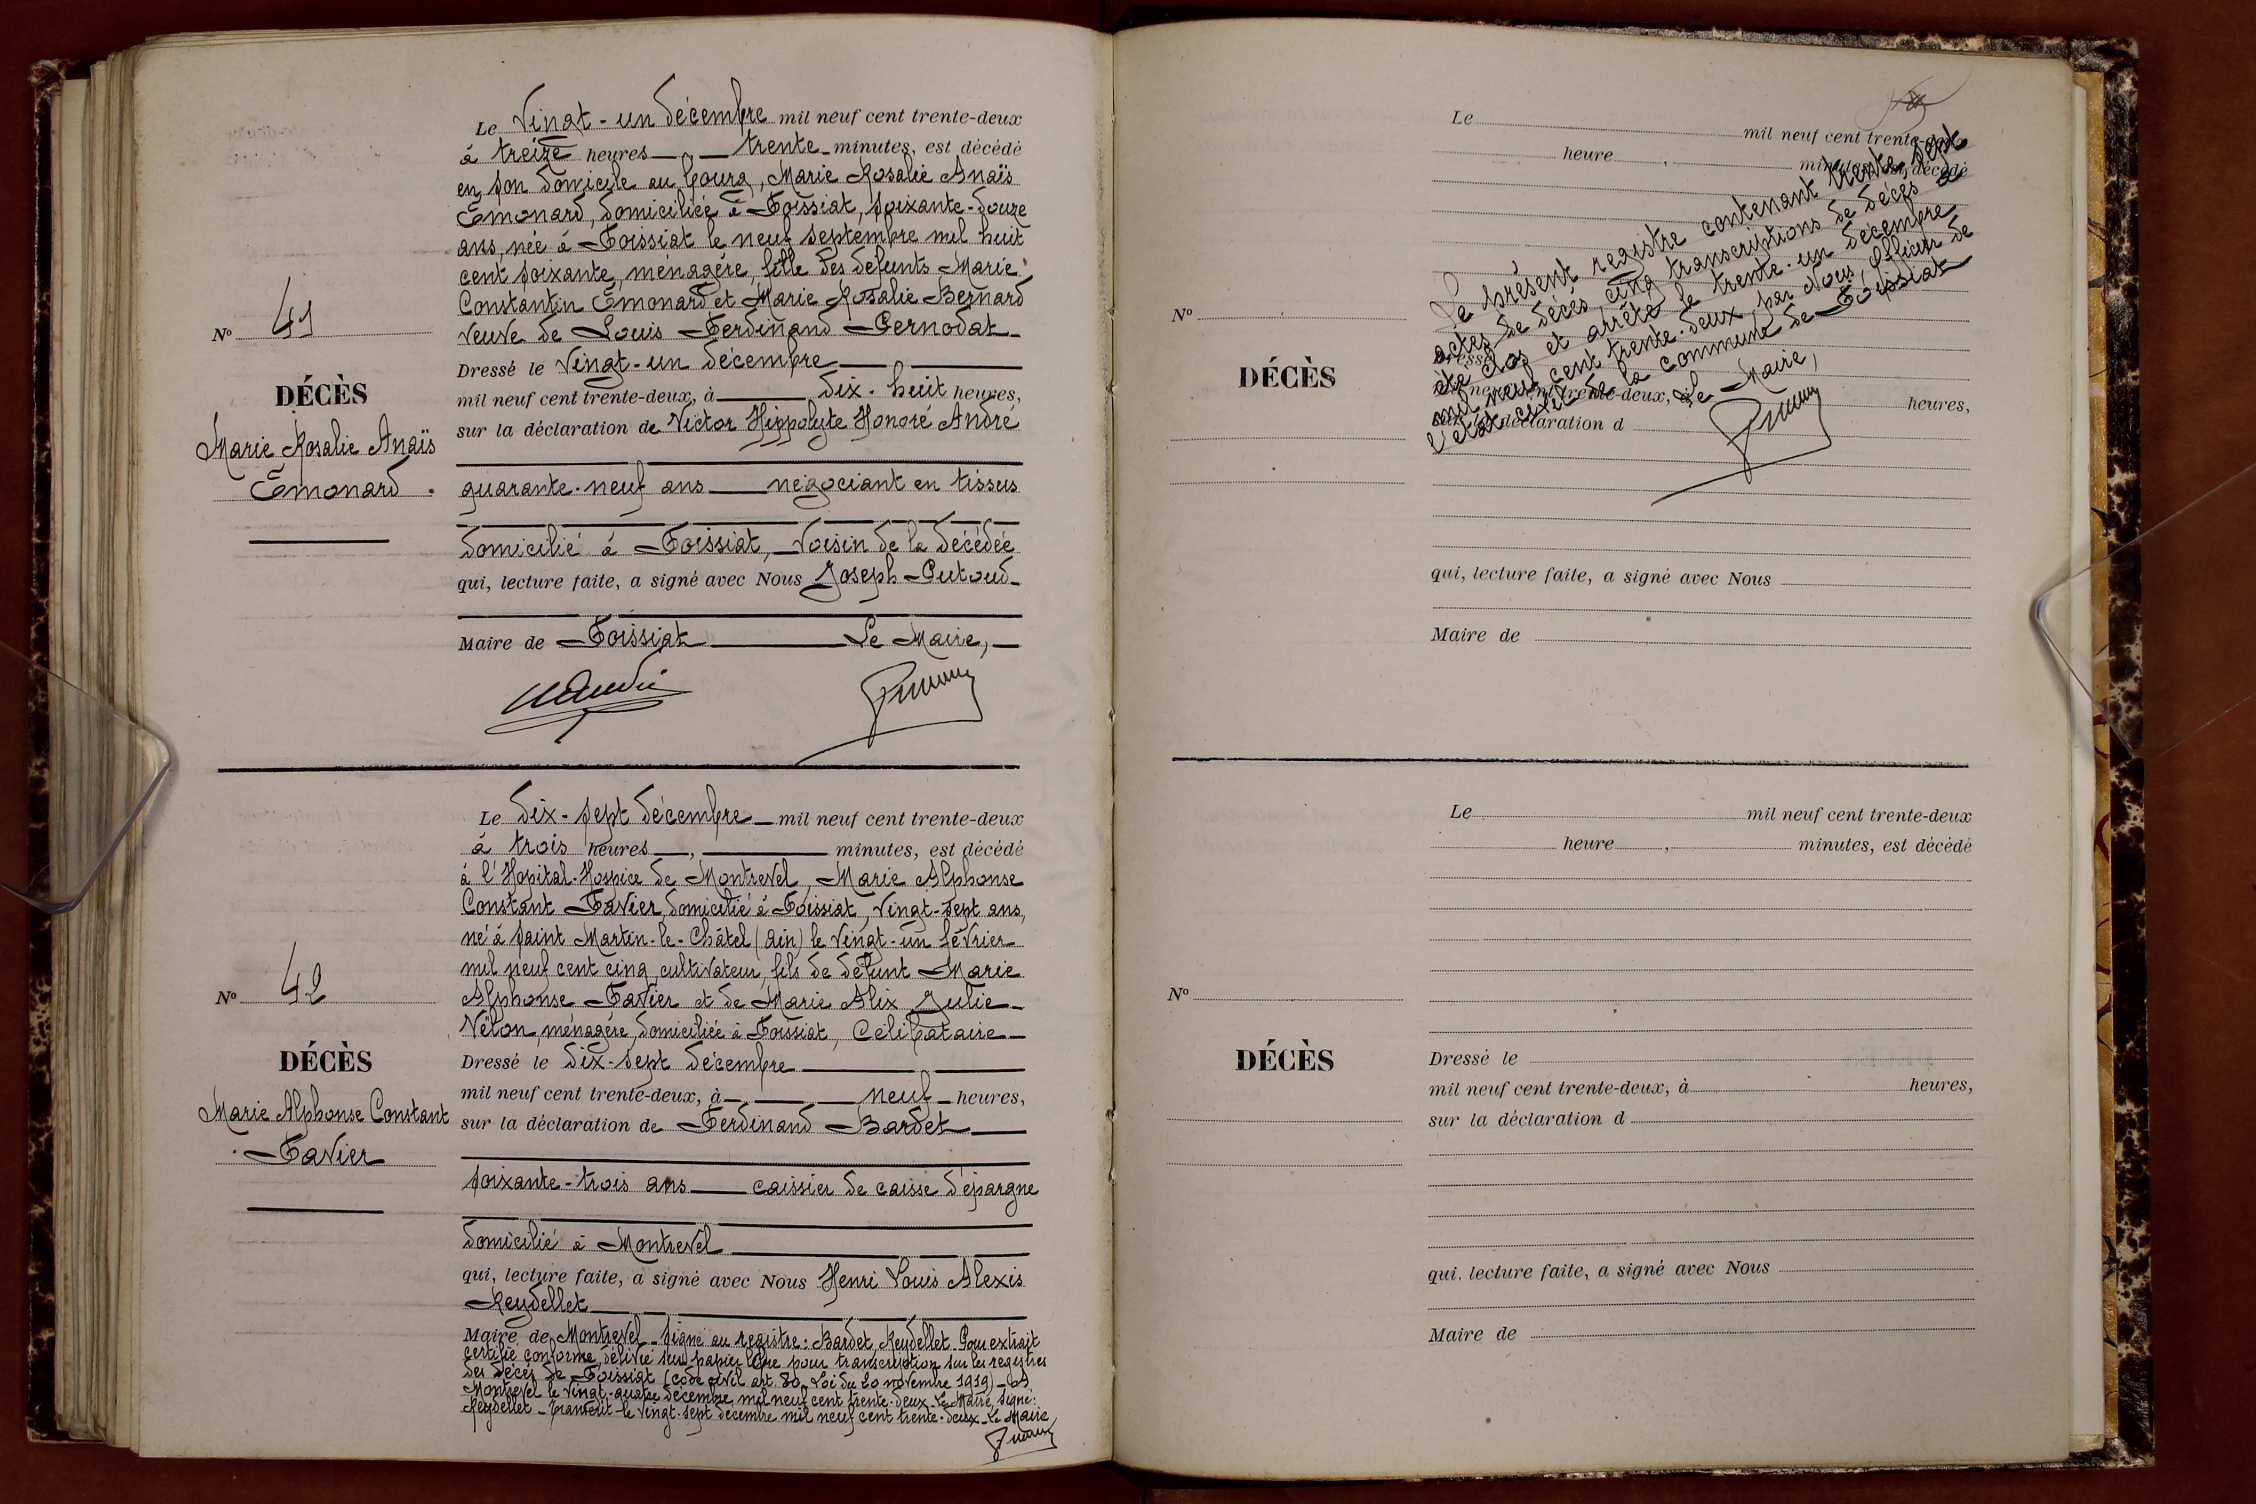 Le Vingt-un décembre mil neuf cent trente-deux
à treize heures, trente minutes, est décédé
en son domicile au bourg, Marie Rosalie Anaïs
Emonard, domiciliée à Foissiat, soixante-douze
ans, née à Foissiat le neuf septembre mil huit
cent soixante, ménagère, fille des defunts Marie
Constantin Emonard et Marie Rosalie Bernard
veuve de Louis Ferdinand Pernodat
Nº 41
DÉCÈS
Marie Rosalie Anaïs
Emonard.
Dressé le Vingt-un décembre
mil neuf cent trente-deux, à dix-huit heures,
sur la déclaration de Victor Hippolyte Honoré André
quarante-neuf ans négociant en tissus
domicilié à Foissiat, voisin de la décédée
qui, lecture faite, a signé avec Nous Joseph Putoud
Maire de Foissiat Le Maire,
Le dix-sept décembre mil neuf cent trente-deux
à trois heures, minutes, est décédé
à l'Hopital-Hospice de Montrevel, Marie Alphonse
Constant Favier, domicilié à Foissiat, vingt-sept ans,
né à saint Martin-le-Châtel (Ain) le vingt-un février
mil neuf cent cinq, cultivateur, fils de défunt Marie
Alphonse Favier et de Marie Alix Julie
Vélon, ménagère, domiciliée à Foissiat, Célibataire
Nº 42
DÉCÈS
Marie Alphonse Constant
Favier
Dressé le dix-sept décembre
mil neuf cent trente-deux, à neuf heures,
sur la déclaration de Ferdinand Bardet
soixante-trois ans caissier de caisse d'épargne
domicilié à Montrevel
qui, lecture faite, a signé avec Nous Henri Louis Alexis
Reydellet
Maire de Montrevel - signé au registre: Bardet, Reydellet. Pour extrait
certifié conforme, délivré sur papier libre pour transcription sur les registres
des décès de Foissiat (code civil art. 80. Loi du 20 novembre 1919) - A
Montrevel le vingt-quatre décembre mil neuf cent trente-deux. Le Maire, signé:
Reydellet - Transcrit le vingt-sept décembre mil neuf cent trente-deux. Le Maire
Le mil neuf cent trente-deux
heure, minutes, est décédé
Le présent registre contenant trente-sept
actes de décès, cinq transcriptions de décès a
été clos et arrêté le trente-un décembre
mil neuf cent trente-deux, par Nous, Officier de
l'état civil de la commune de Foissiat
Le Maire,
Nº
DÉCÈS
Dressé
mil neuf cent trente-deux, à heures,
sur la déclaration d
qui, lecture faite, a signé avec Nous
Maire de
Le mil neuf cent trente-deux
heure, minutes, est décédé
Nº
DÉCÈS
Dressé le
mil neuf cent trente-deux, à heures,
sur la déclaration d
qui, lecture faite, a signé avec Nous
Maire de